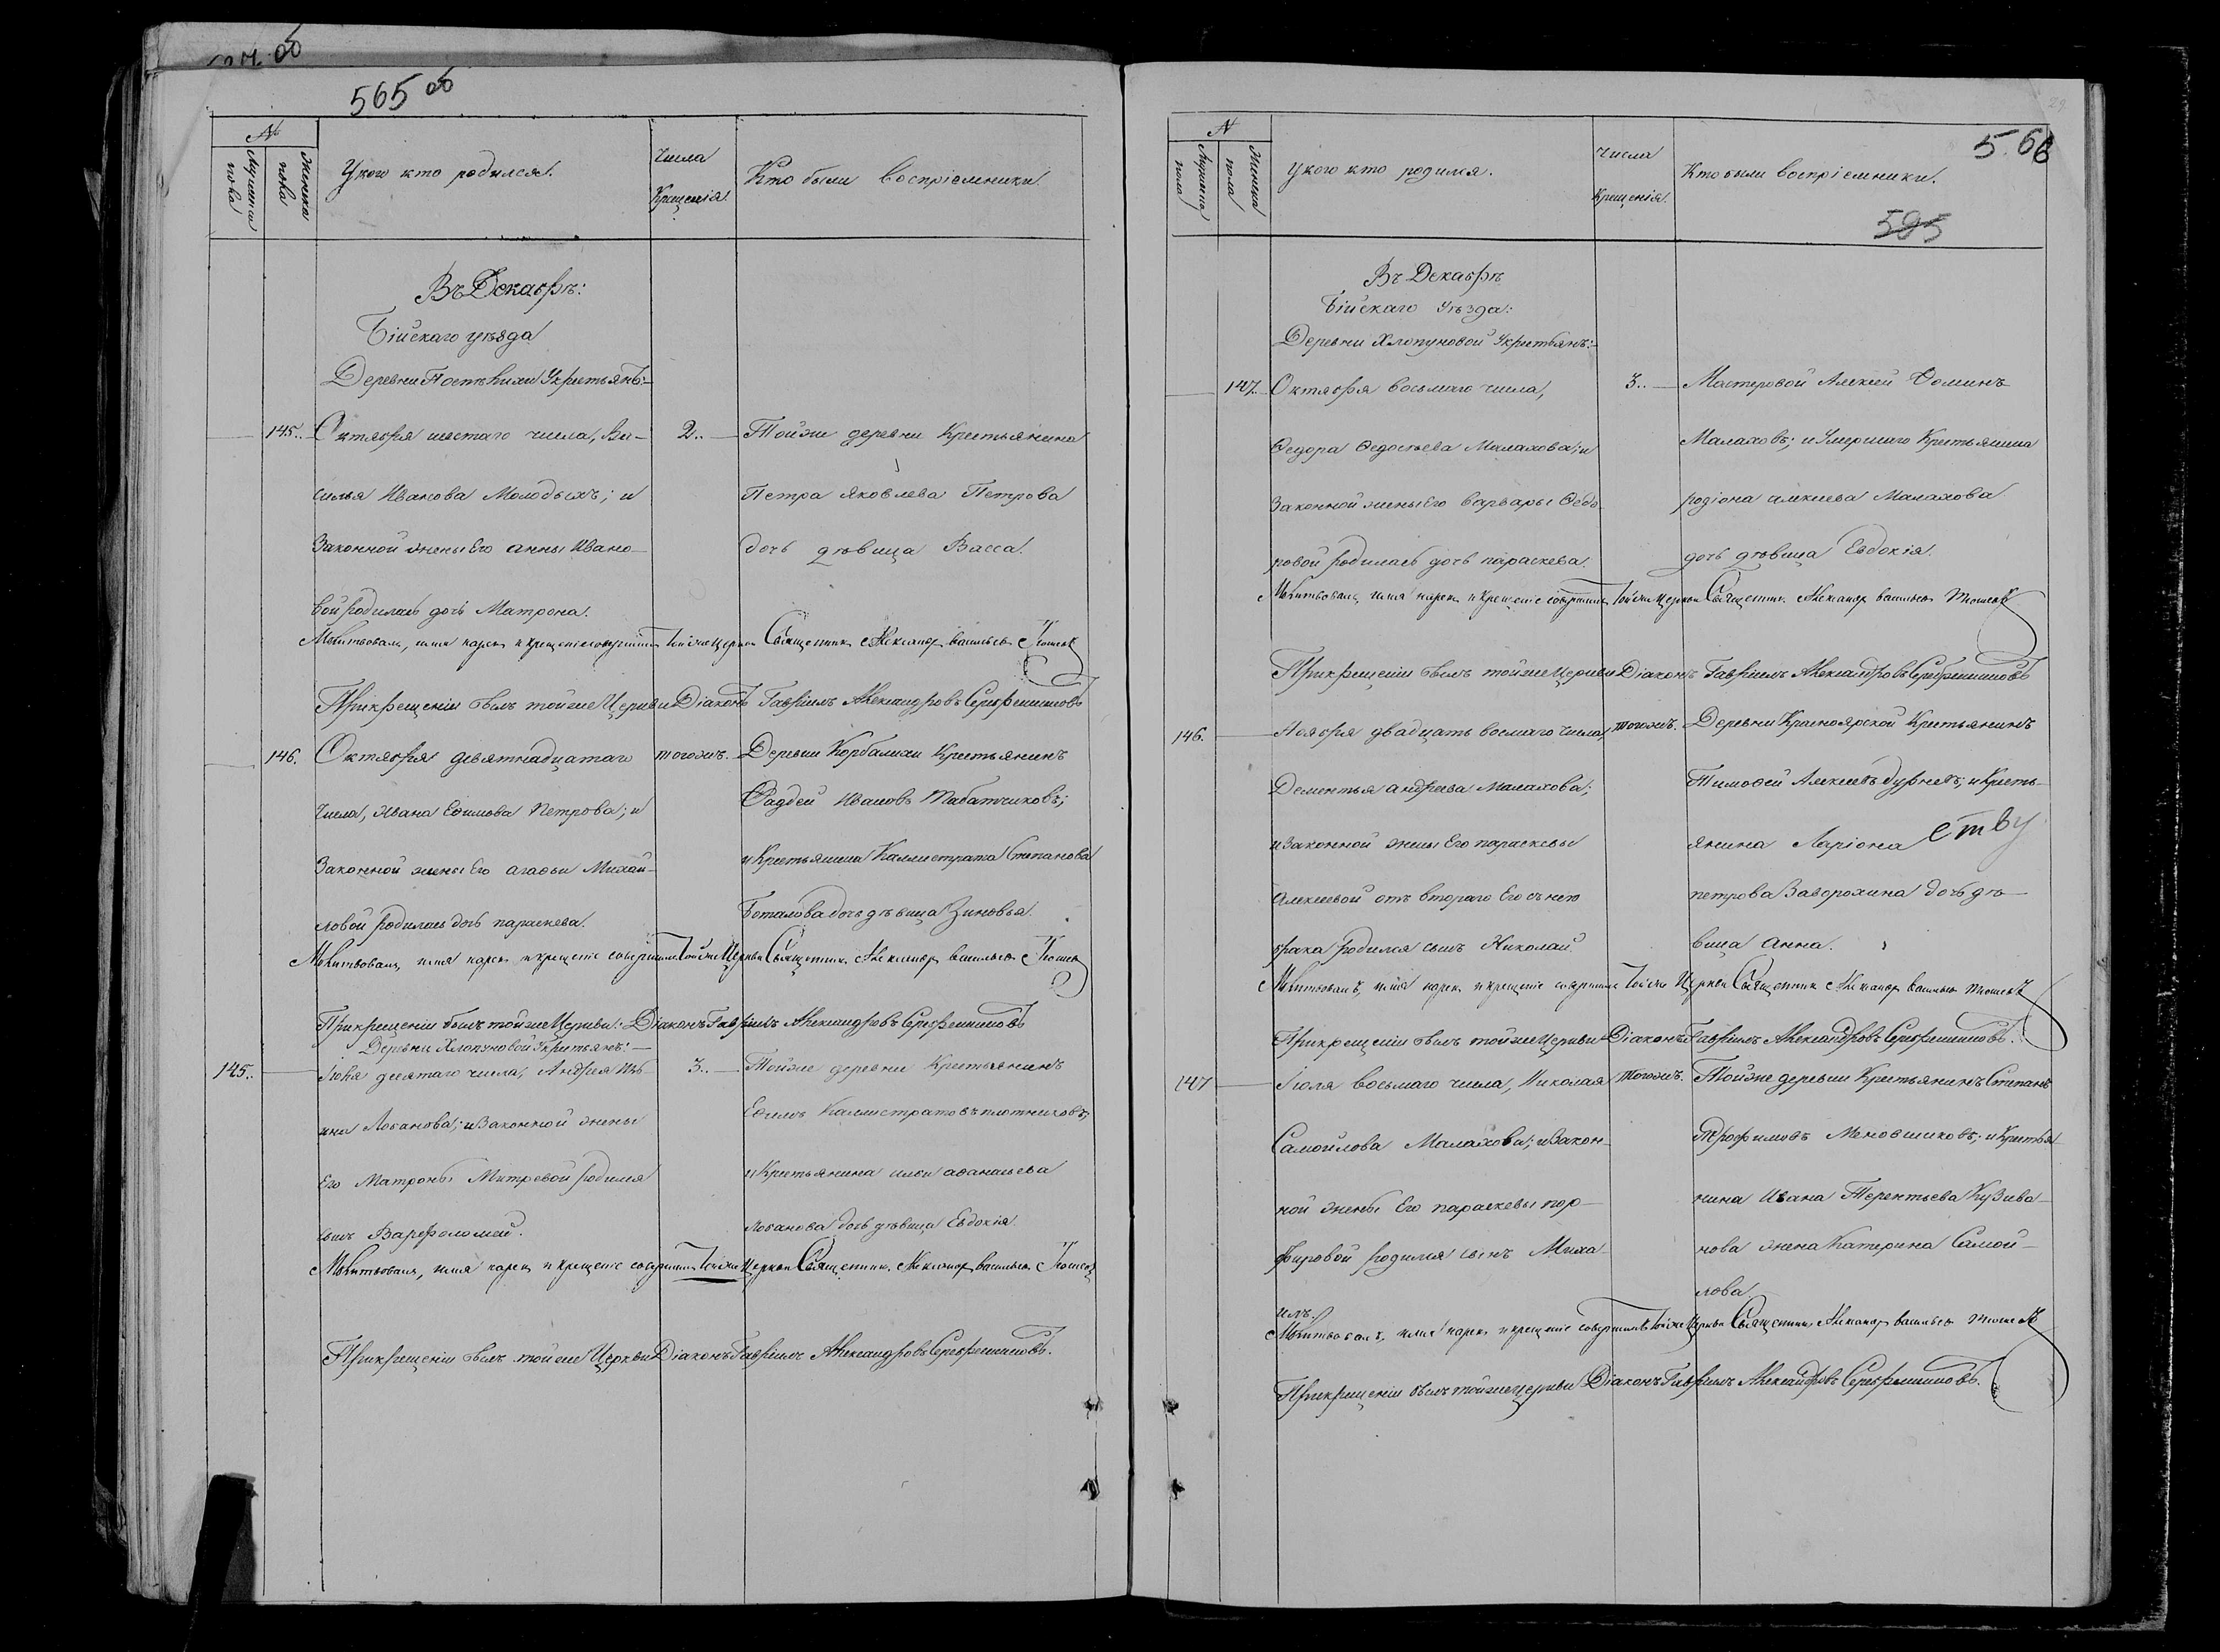 565 об
№
Мужеска пола
Женска пола
У кого кто родился.
Числа
Крещенія.
Кто были воспріемники.
Въ Декабрѣ:
Бійскаго уѣзда
Деревни Укрестьянъ:
145. Октября шестаго числа, Ва-
2. Тойже деревни Крестьянина
силья Иванова Молодыхъ; и
Петра Яковлева Петрова
Законной жены Его Анны Ивано-
дочь дѣвица Васса.
вой родилась дочь Матрона.
Молитвовалъ, имя нарекъ и крещеніе совершилъ Тойже Церкви Священникъ Александръ Васильевъ
При крещеніи былъ тойже Церкви Діаконъ Гавріилъ Александровъ Серебренниковъ
146. Октября девятнадцатаго
тогожъ. Деревни Корбалихи Крестьянинъ
числа, Ивана Ефимова Петрова; и
Фаддей Ивановъ Табатчиковъ;
Законной жены Его Агафьи Михай-
и Крестьянина Каллистрата Степанова
ловой родилась дочь параскева.
Боталова дочь дѣвица Зиновья.
Молитвовалъ, имя нарекъ и крещеніе совершилъ Тойже Церкви Священникъ Александръ Васильевъ
При крещеніи былъ тойже Церкви: Діаконъ Гавріилъ Александровъ Серебренниковъ
Деревни Хлопуновой Укрестьянъ:
145. Іюня десятаго числа, Андрея
3. Тойже деревни Крестьянинъ
ина Лобанова; и Законной жены
Ефимъ Каллистратовъ плотниковъ;
Его Матроны Митревой родился
и Крестьянина Ильи Афанасьева
сынъ Варфоломей.
Лобанова дочь дѣвица Евдокія.
Молитвовалъ, имя нарекъ и крещеніе совершилъ Тойже Церкви Священникъ Александръ Васильевъ
При крещеніи былъ тойже Церкви Діаконъ Гавріилъ Александровъ Серебренниковъ.
566
595
№
Мужеска пола
Женска пола
У кого кто родился.
Числа
Крещенія.
Кто были воспріемники.
Въ Декабрѣ
Бійскаго Уѣзда:
Деревни Хлопуновой Укрестьянъ:
147. Октября восьмаго числа,
3. Мастеровой Алексей Фоминъ
Федора Федосѣева Малахова; и
Малаховъ; и Умершаго Крестьянина
Законной жены Его варвары Федо-
родіона алексеева Малахова
ровой родилась дочь параскева.
дочь дѣвица Евдокія.
Молитвовалъ, имя нарекъ и крещеніе совершилъ Тойже Церкви Священникъ Александръ Васильевъ
При крещеніи былъ тойже Церкви Діаконъ Гавріилъ Александровъ Серебренниковъ
146. Ноября двадцать восмаго числа,
тогожъ. Деревни Красноярской Крестьянинъ
Дементья Андреева Малахова;
Тимофей Алексеевъ Дурневъ; и Кресть-
и Законной жены Его параскевы
янина Ларіона
ству
Алексеевой отъ втораго Его съ нею
петрова Заворохина дочь дѣ-
брака родился сынъ Николай
вица Анна.
Молитвовалъ, имя нарекъ и крещеніе совершилъ Тойже Церкви Священникъ Александръ Васильевъ
При крещеніи былъ тойже Церкви Діаконъ Гавріилъ Александровъ Серебренниковъ.
147 Іюля восьмаго числа, Николая
Тогожъ. Тойже деревни Крестьянинъ Степанъ
Самойлова Малахова; и Закон-
Трофимовъ Меновшиковъ; и Крестья-
ной жены Его параскевы пор-
нина Ивана Терентьева Кузива-
фировой родился сынъ Миха-
нова жена Катерина Самой-
илъ.
лова
Молитвовалъ, имя нарекъ и крещеніе совершилъ Тойже Церкви Священникъ Александръ Васильевъ
При крещеніи былъ тойже церкви Діаконъ Гавріилъ Александровъ Серебренниковъ.